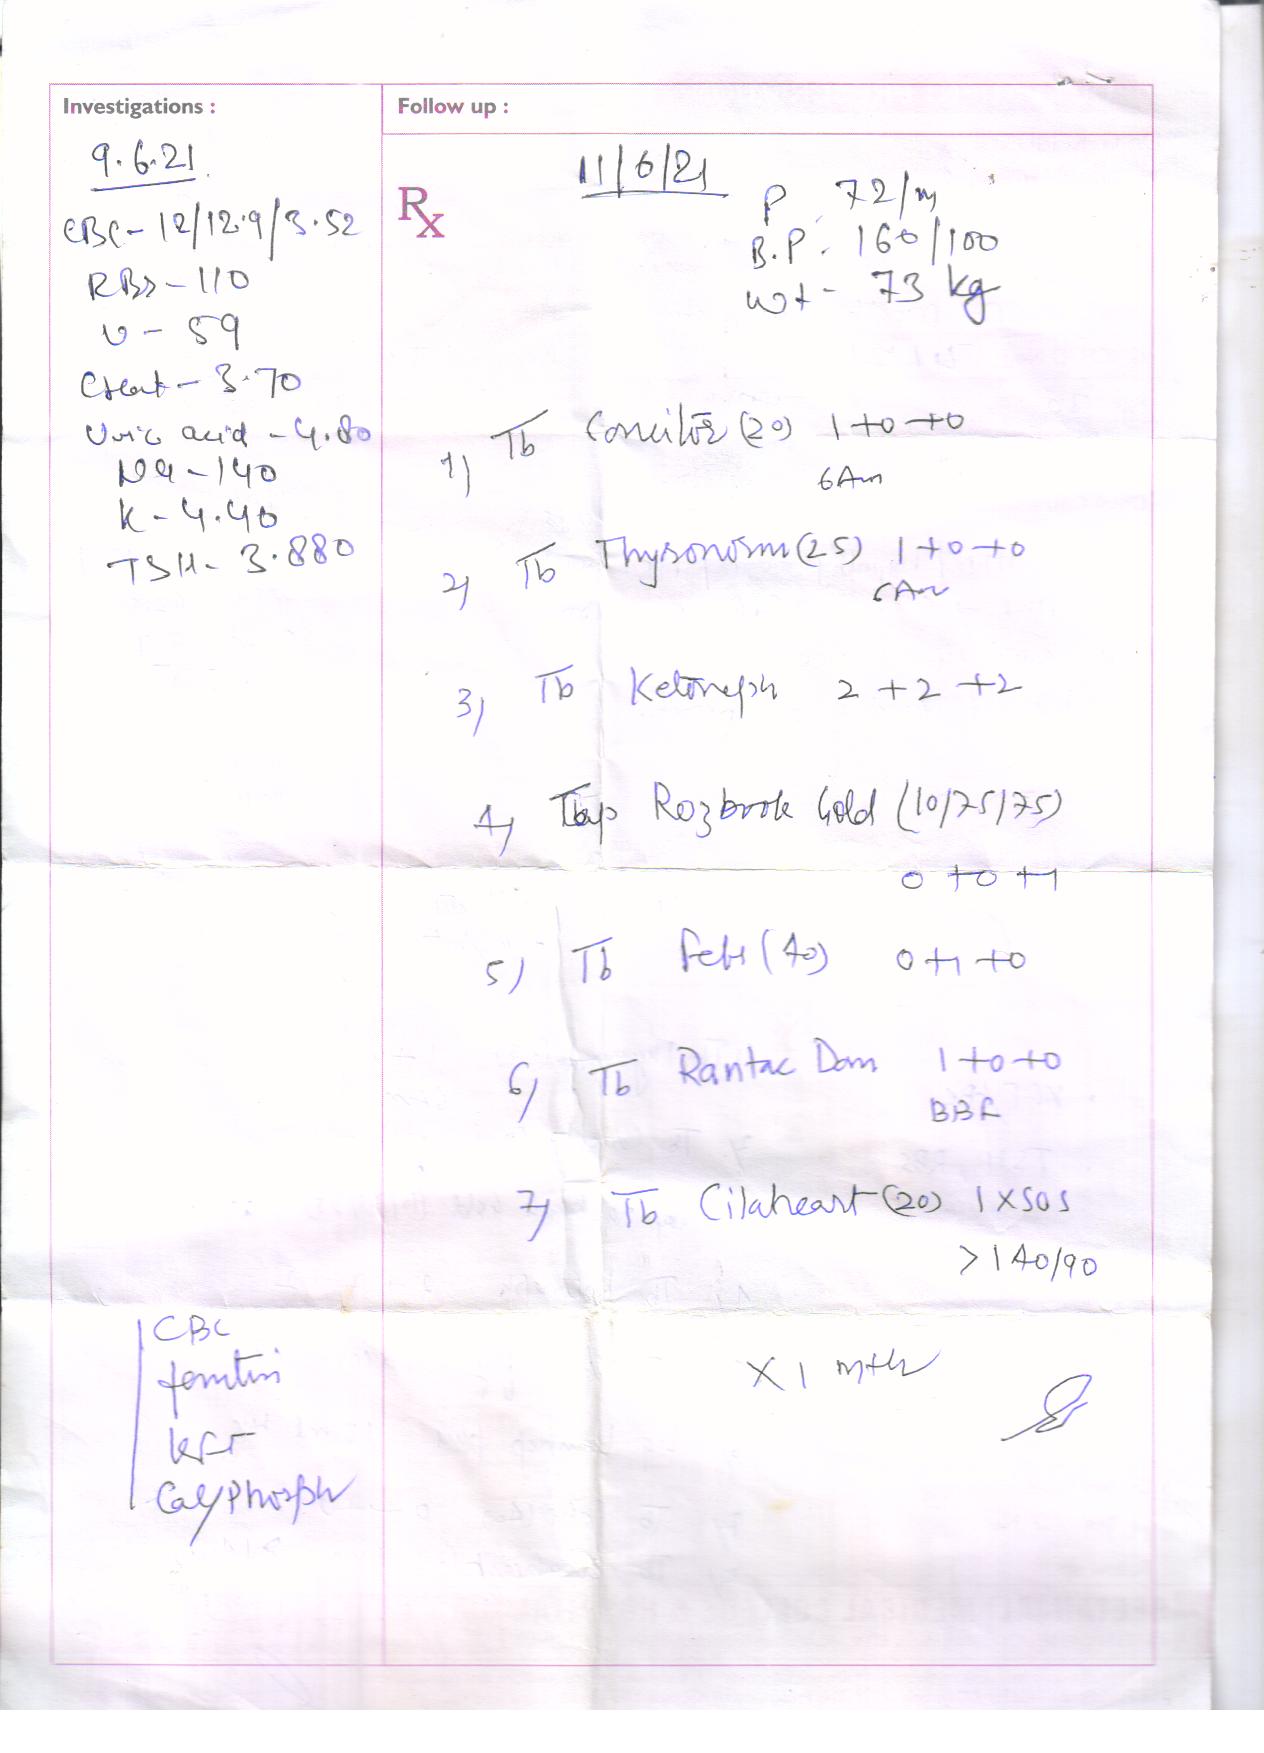 Investigations :
9.6.21
CBC - 12/12.9/3.52
RBS - 110
U - 59
Creat - 3.70
Uric acid - 4.80
Na - 140
K - 4.40
TSH - 3.880
CBC
ferritin
KFT
Cal/Phosph
Follow up :
Rx
11/6/21
P 72/m
B.P. 160/100
wt - 73 kg
1) Tb (20) 1+0+0
6Am
2) Tb Thyronorm (25) 1+0+0
6Am
3) Tb Ketoneph 2+2+2
4) Rozbrook Gold (10/75/75)
0+0+1
5) Tb (40) 0+1+0
6) Tb Rantac Dom 1+0+0
BBF
7) Tb Cilaheart (20) 1 x SOS
>140/90
x 1 mth